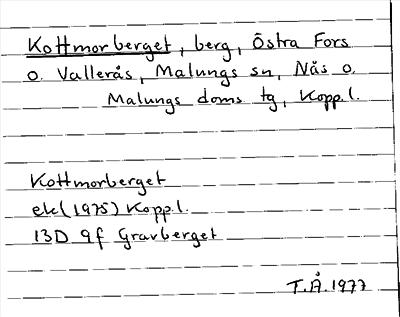 Kottmorberget, berg, Östra Fors
o. Vallerås, Malungs sn, Nås o.
Malungs doms tg, Kopp.l.
Kottmorberget
ek(1975) Kopp.l.
13D 9f Gravberget
T.Å.1977